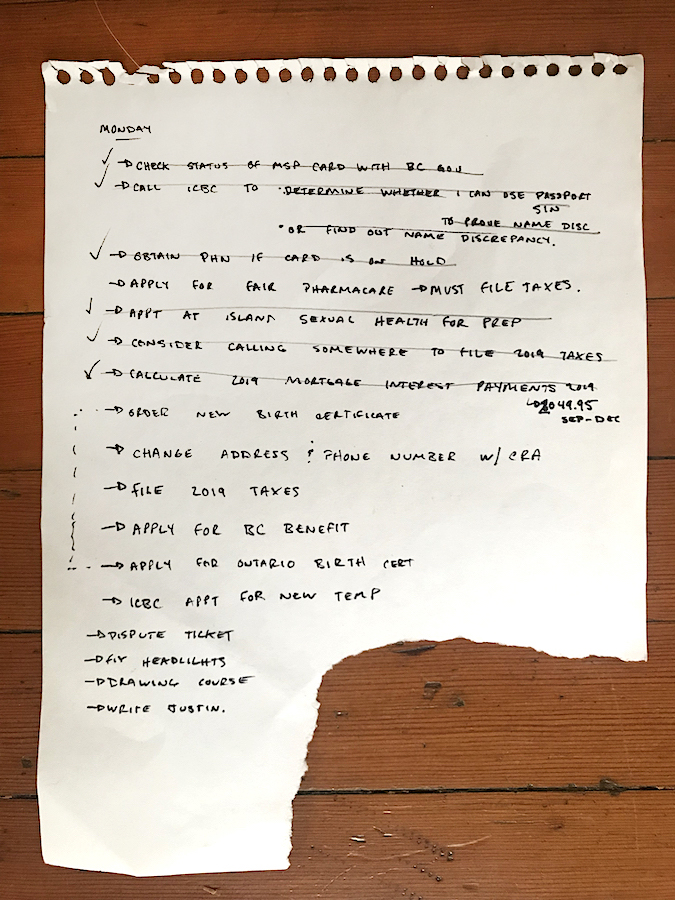 MONDAY
✓ → CHECK STATUS OF MSP CARD WITH BC GOV
✓ → CALL ICBC TO • DETERMINE WHETHER I CAN USE PASSPORT
SIN
TO PROVE NAME DISC
• OR FIND OUT NAME DISCREPANCY.
✓ → OBTAIN PHN IF CARD IS ON HOLD
→ APPLY FOR FAIR PHARMACARE → MUST FILE TAXES.
✓ → APPT AT ISLAND SEXUAL HEALTH FOR PREP
✓ → CONSIDER CALLING SOMEWHERE TO FILE 2019 TAXES
✓ → CALCULATE 2019 MORTGAGE INTEREST PAYMENTS 2019
SEP-DEC
→ ORDER NEW BIRTH CERTIFICATE
→ CHANGE ADDRESS & PHONE NUMBER W/ CRA
→ FILE 2019 TAXES
→ APPLY FOR BC BENEFIT
→ APPLY FOR ONTARIO BIRTH CERT
→ ICBC APPT FOR NEW TEMP
→ DISPUTE TICKET
→ FIX HEADLIGHTS
→ DRAWING COURSE
→ WRITE JUSTIN.